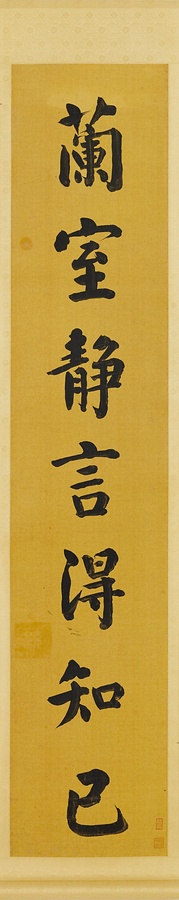 蘭室静言得知己